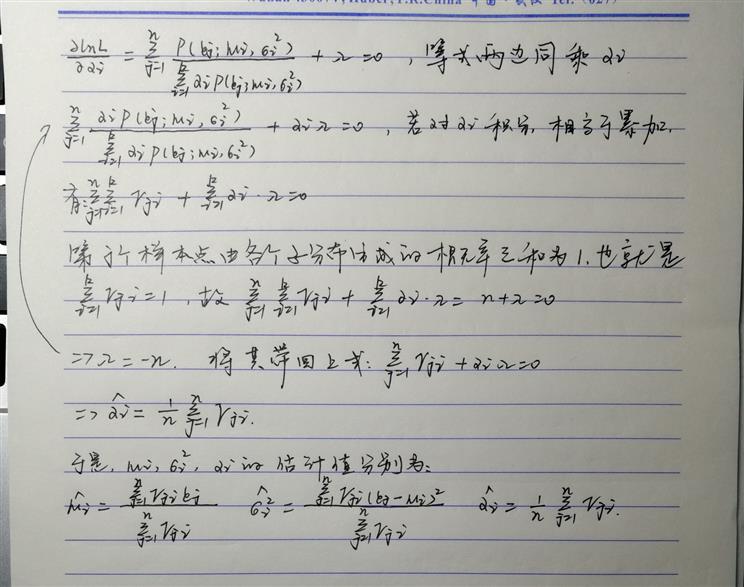 Wuhan 430077, Hubei, P.R.China 中国·武汉 Tel: (027)
∂lnL/∂αi = Σ_{j=1}^{n} P(yj; μi, σi²) / Σ_{i=1}^{k} αi P(yj; μi, σi²) + λ = 0 , 等式两边同乘 αi
Σ_{j=1}^{n} αi P(yj; μi, σi²) / Σ_{i=1}^{k} αi P(yj; μi, σi²) + αi λ = 0 , 若对 αi 积分, 相当于累加.
有: Σ_{j=1}^{n} Σ_{i=1}^{k} γji + Σ_{i=1}^{k} αi · λ = 0
第j个样本点由各个子分布生成的概率之和为1. 也就是
Σ_{i=1}^{k} γji = 1 , 故 Σ_{j=1}^{n} Σ_{i=1}^{k} γji + Σ_{i=1}^{k} αi · λ = n + λ = 0
=> λ = -n. 将其带回上式: Σ_{j=1}^{n} γji + αi λ = 0
=> α̂i = 1/n Σ_{j=1}^{n} γji.
于是, μi, σi², αi 的估计值分别为:
μ̂i = Σ_{j=1}^{n} γji yj / Σ_{j=1}^{n} γji σ̂i² = Σ_{j=1}^{n} γji (yj - μi)² / Σ_{j=1}^{n} γji α̂i = 1/n Σ_{j=1}^{n} γji.